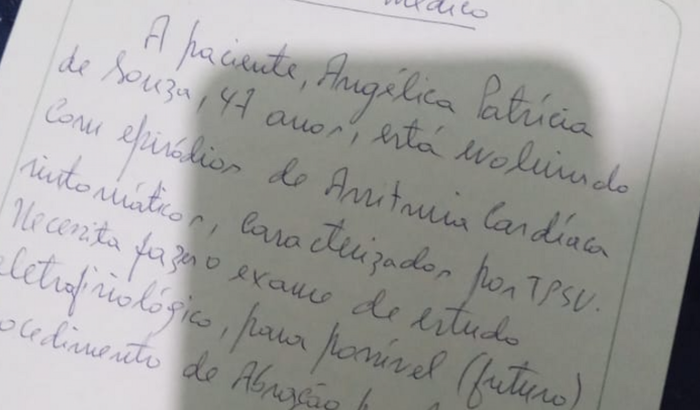 médico
A paciente, Angélica Patrícia
de Souza, 47 anos, está evoluindo
com episódios de Arritmia Cardíaca
sintomáticos, caracterizados por TPSV.
Necessita fazer o exame de estudo
eletrofisiológico, para possível (futuro)
procedimento de Ablação